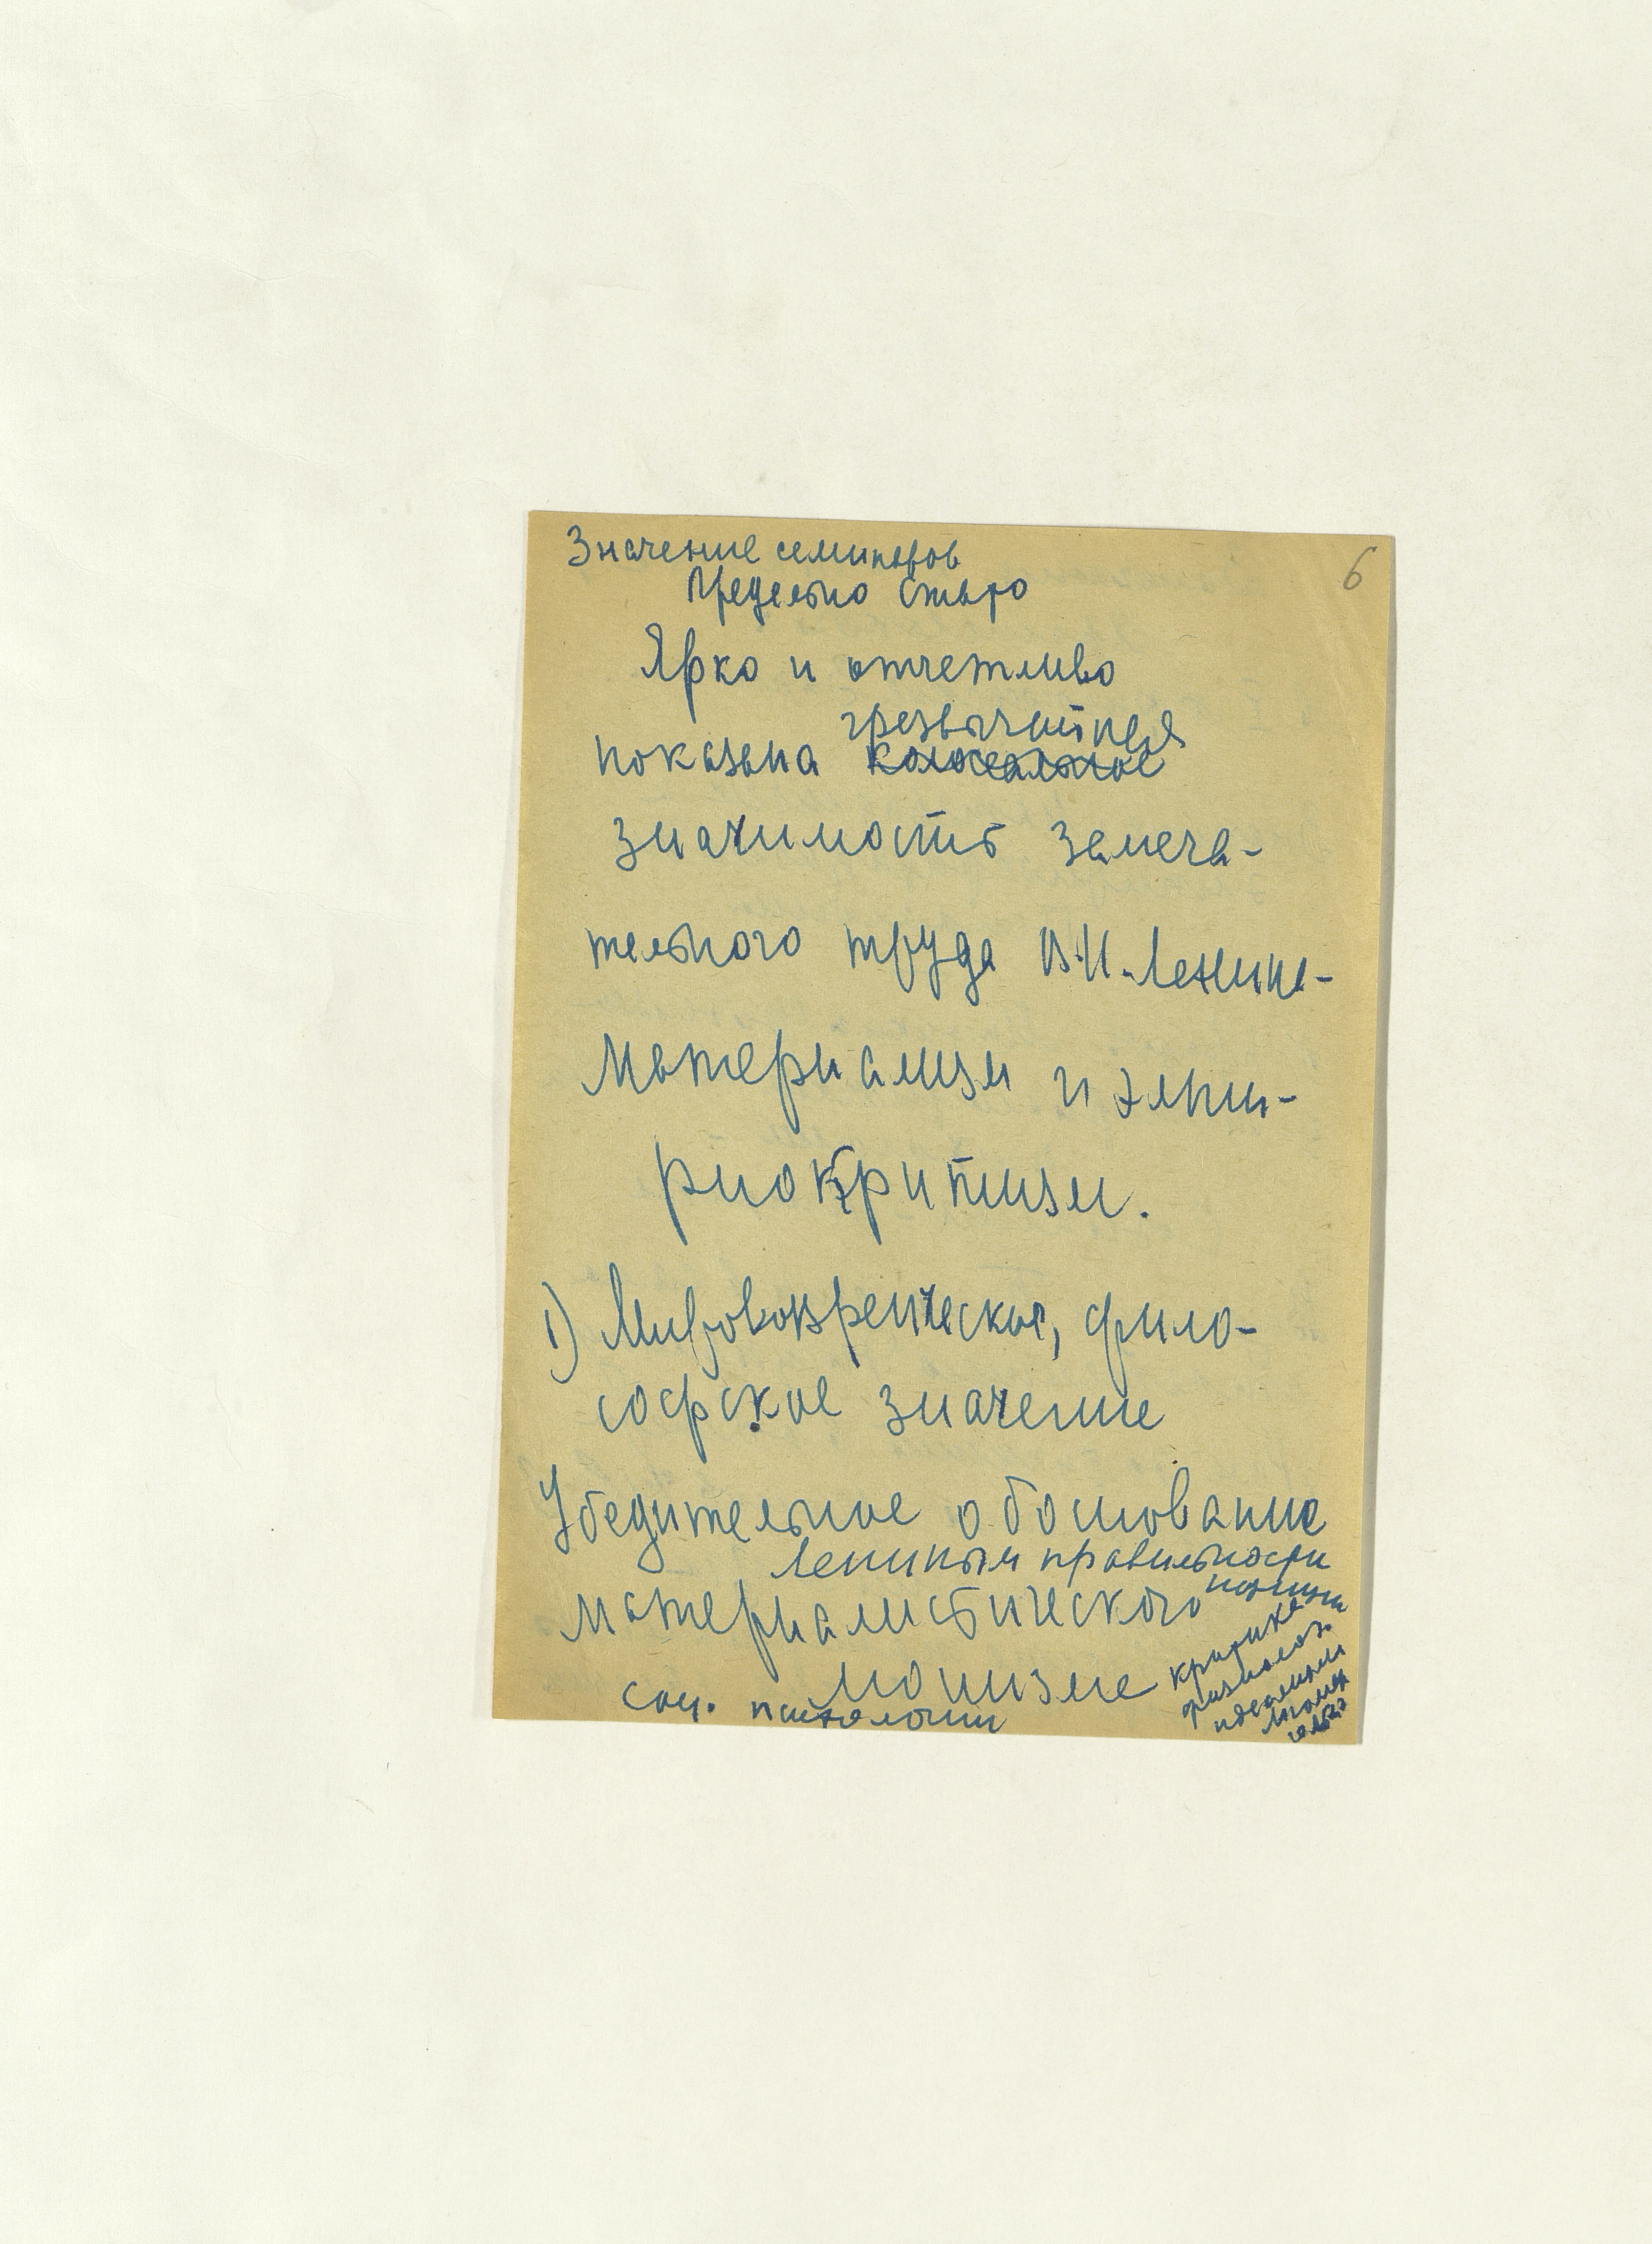 6
Значение семинаров
Предельно
Ярко и отчетливо
чрезвычайная
показана колосальное
значимость замеча-
тельного труда В.И. Ленина-
Материализм и эмпи-
риокритизм.
1) Мировоззренческое, фило-
софское значение
Убедительное обоснование
Лениным правильности
позиции
материалистического
монизма
критика
физиолог.
идеализма
соц. психологии